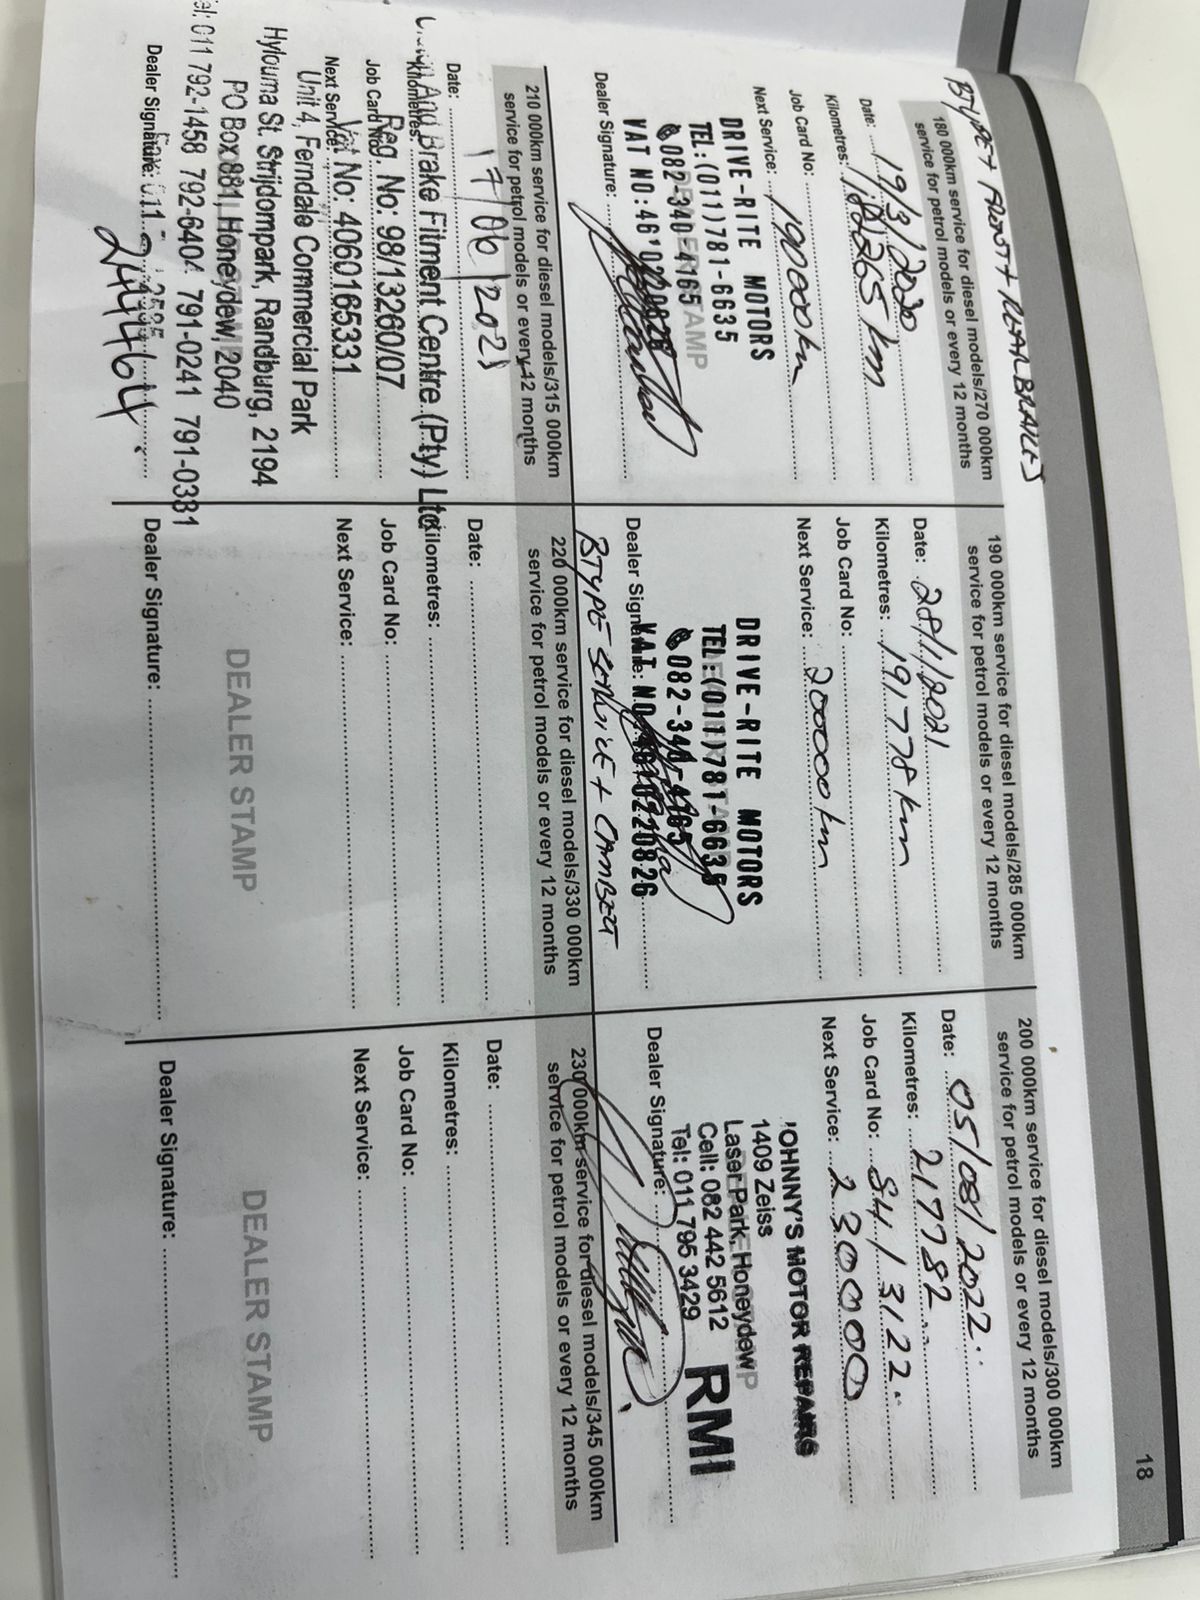 18
BTYPE + FRONT + REAR BRAKES
180 000km service for diesel models/270 000km
service for petrol models or every 12 months
Date: 19/3/2020
Kilometres: 180265 km
Job Card No:
Next Service: 190000km
DRIVE-RITE MOTORS
TEL:(011)781-6635
082-340-4165
VAT NO:46'0220826
Dealer Signature:
190 000km service for diesel models/285 000km
service for petrol models or every 12 months
Date: 28/1/2021
Kilometres: 191778 km
Job Card No:
Next Service: 200000km
DRIVE-RITE MOTORS
TEL:(011)781-6635
082-340-4165
VAT NO:4610220826
Dealer Signature:
BTYPE SERVICE + CAMBELT
200 000km service for diesel models/300 000km
service for petrol models or every 12 months
Date: 05/08/2022
Kilometres: 217782
Job Card No: S413122
Next Service: 230000
JOHNNY'S MOTOR REPAIRS
1409 Zeiss
Laser Park, Honeydew
Cell: 082 442 5612
Tel: 011 795 3429
RMI
Dealer Signature:
210 000km service for diesel models/315 000km
service for petrol models or every 12 months
Date: 17/06/2023
Kilometres:
And Brake Fitment Centre (Pty) Ltd
Job Card No:
Reg. No: 98/13260/07
Next Service:
Vat No: 4060165331
Unit 4, Ferndale Commercial Park
Hylouma St, Strijdompark, Randburg, 2194
PO Box 881, Honeydew, 2040
Tel: 011 792-1458 792-6404 791-0241 791-0381
Dealer Signature:
244464
220 000km service for diesel models/330 000km
service for petrol models or every 12 months
Date:
Kilometres:
Job Card No:
Next Service:
DEALER STAMP
Dealer Signature:
230 000km service for diesel models/345 000km
service for petrol models or every 12 months
Date:
Kilometres:
Job Card No:
Next Service:
DEALER STAMP
Dealer Signature: